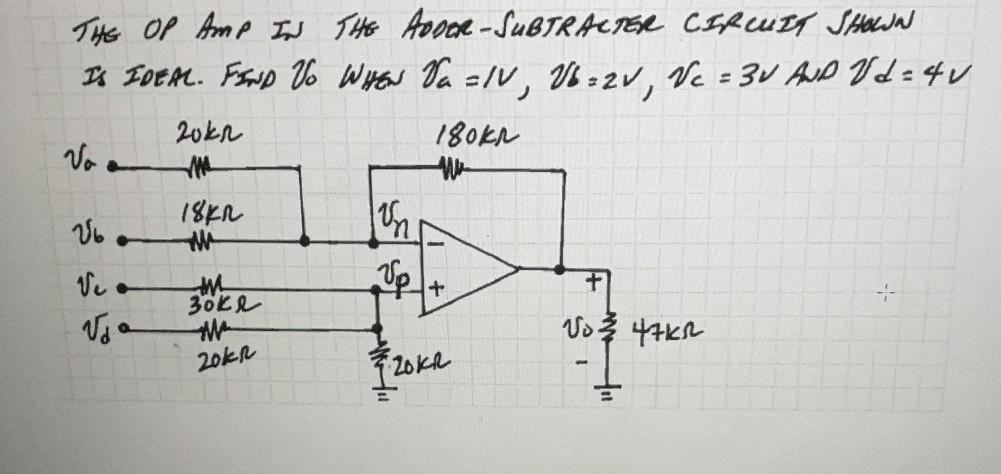 THE OP AMP IN THE ADDER-SUBTRACTER CIRCUIT SHOWN
IS IDEAL. FIND Vo WHEN Va = 1V, Vb = 2V, Vc = 3V AND Vd = 4V
20kΩ
180kΩ
Va
18kΩ
Vn
Vb
−
Vc
Vp
+
30kΩ
+
Vd
Vo
47kΩ
20kΩ
20kΩ
−